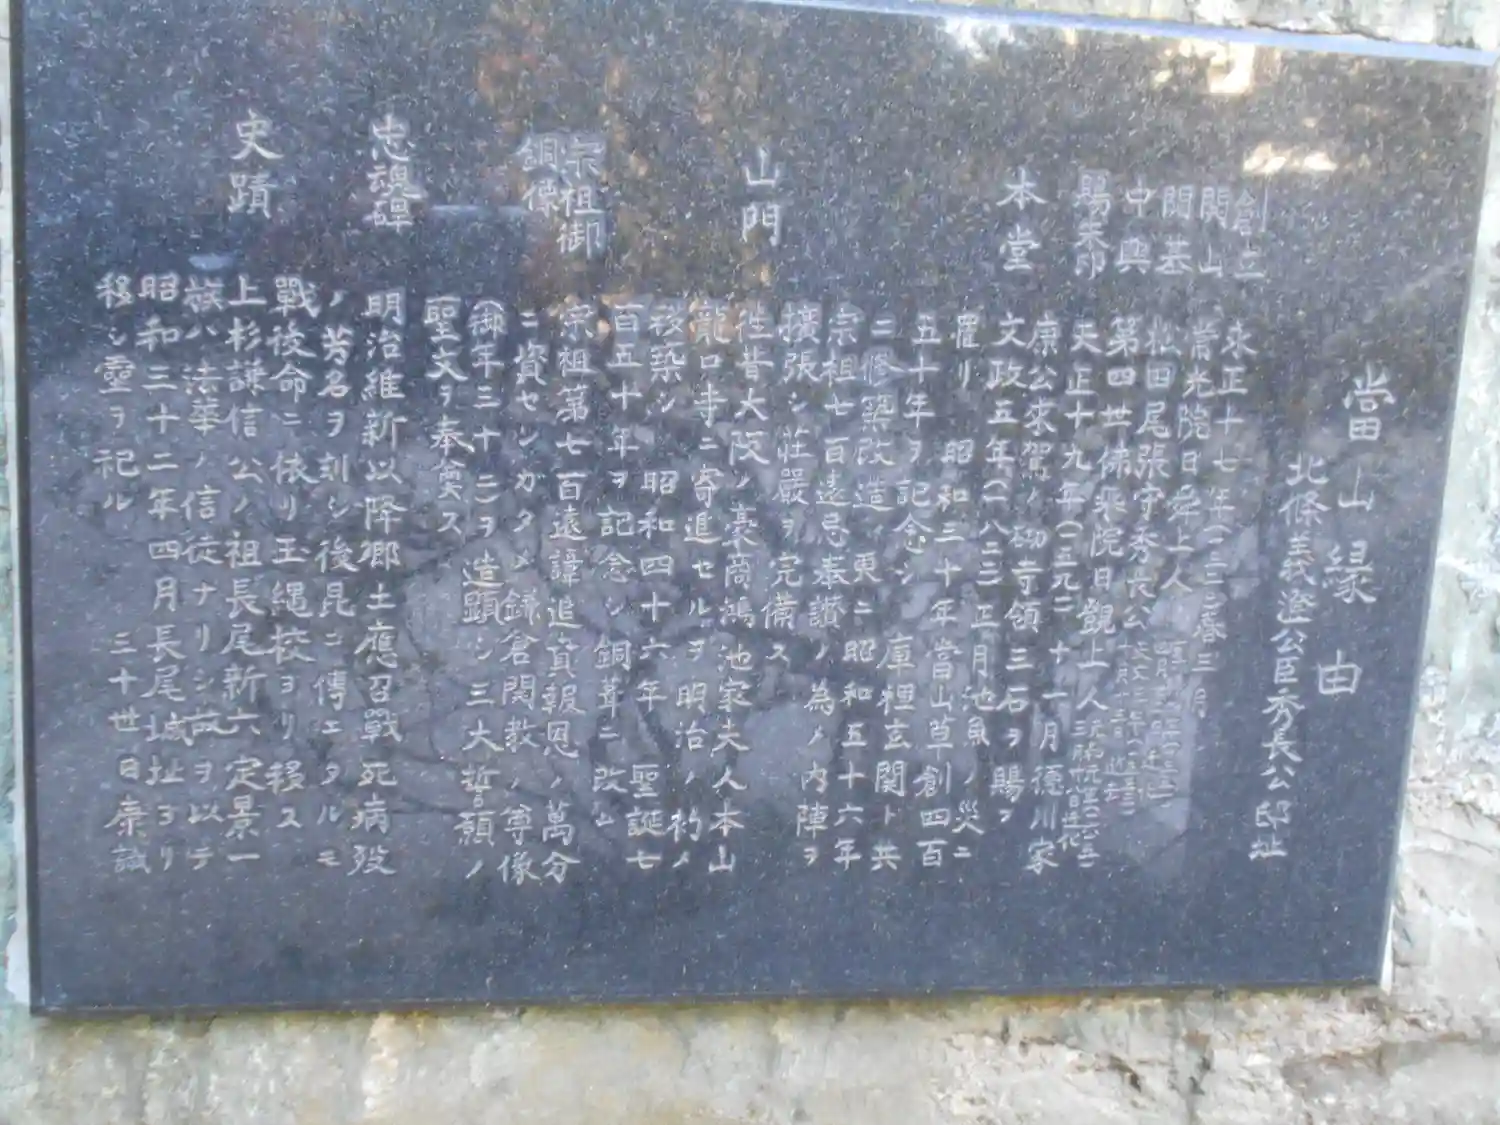 當山縁由
北條義澄公臣秀長公邸址
創立 永正十七年(一五二〇)春三月
開山 常光院日舜上人
開基 松田尾張守秀長公
中興 第四世佛乘院日観上人
賜朱印 天正十九年(一五九一)十一月德川家
康公來駕ノ砌寺領三石ヲ賜ヲ
本堂 文政五年(一八二二)正月池魚ノ災ニ
罹リ 昭和三十年當山草創四百
五十年ヲ記念シ 庫裡玄関ト共
ニ修築改造 更ニ昭和五十六年
宗祖七百遠忌奉讃ノ為メ内陣ヲ
擴張シ荘嚴ヲ完備ス
山門 往昔大阪ノ豪商鴻池家夫人本山
龍口寺ニ寄進セルヲ明治ノ初メ
移築シ 昭和四十六年 聖誕七
百五十年ヲ記念シ銅葺ニ改ム
宗祖御銅像 宗祖第七百遠諱追資報恩ノ萬分
ニ資センガタメ鎌倉開教ノ尊像
(御年三十二)ヲ造顕シ三大誓願ノ
聖文ヲ奉奠ス
忠魂碑 明治維新以降郷土應召戰死病歿
ノ芳名ヲ刻シ後昆ニ傳エタルモ
戰後命ニ依リ玉縄校ヨリ移ス
史蹟 上杉謙信公ノ祖長尾新六定景一
族ハ法華ノ信徒ナリシ故ヲ以テ
昭和三十二年四月長尾城址ヨリ
移シ靈ヲ祀ル 三十世日康誠